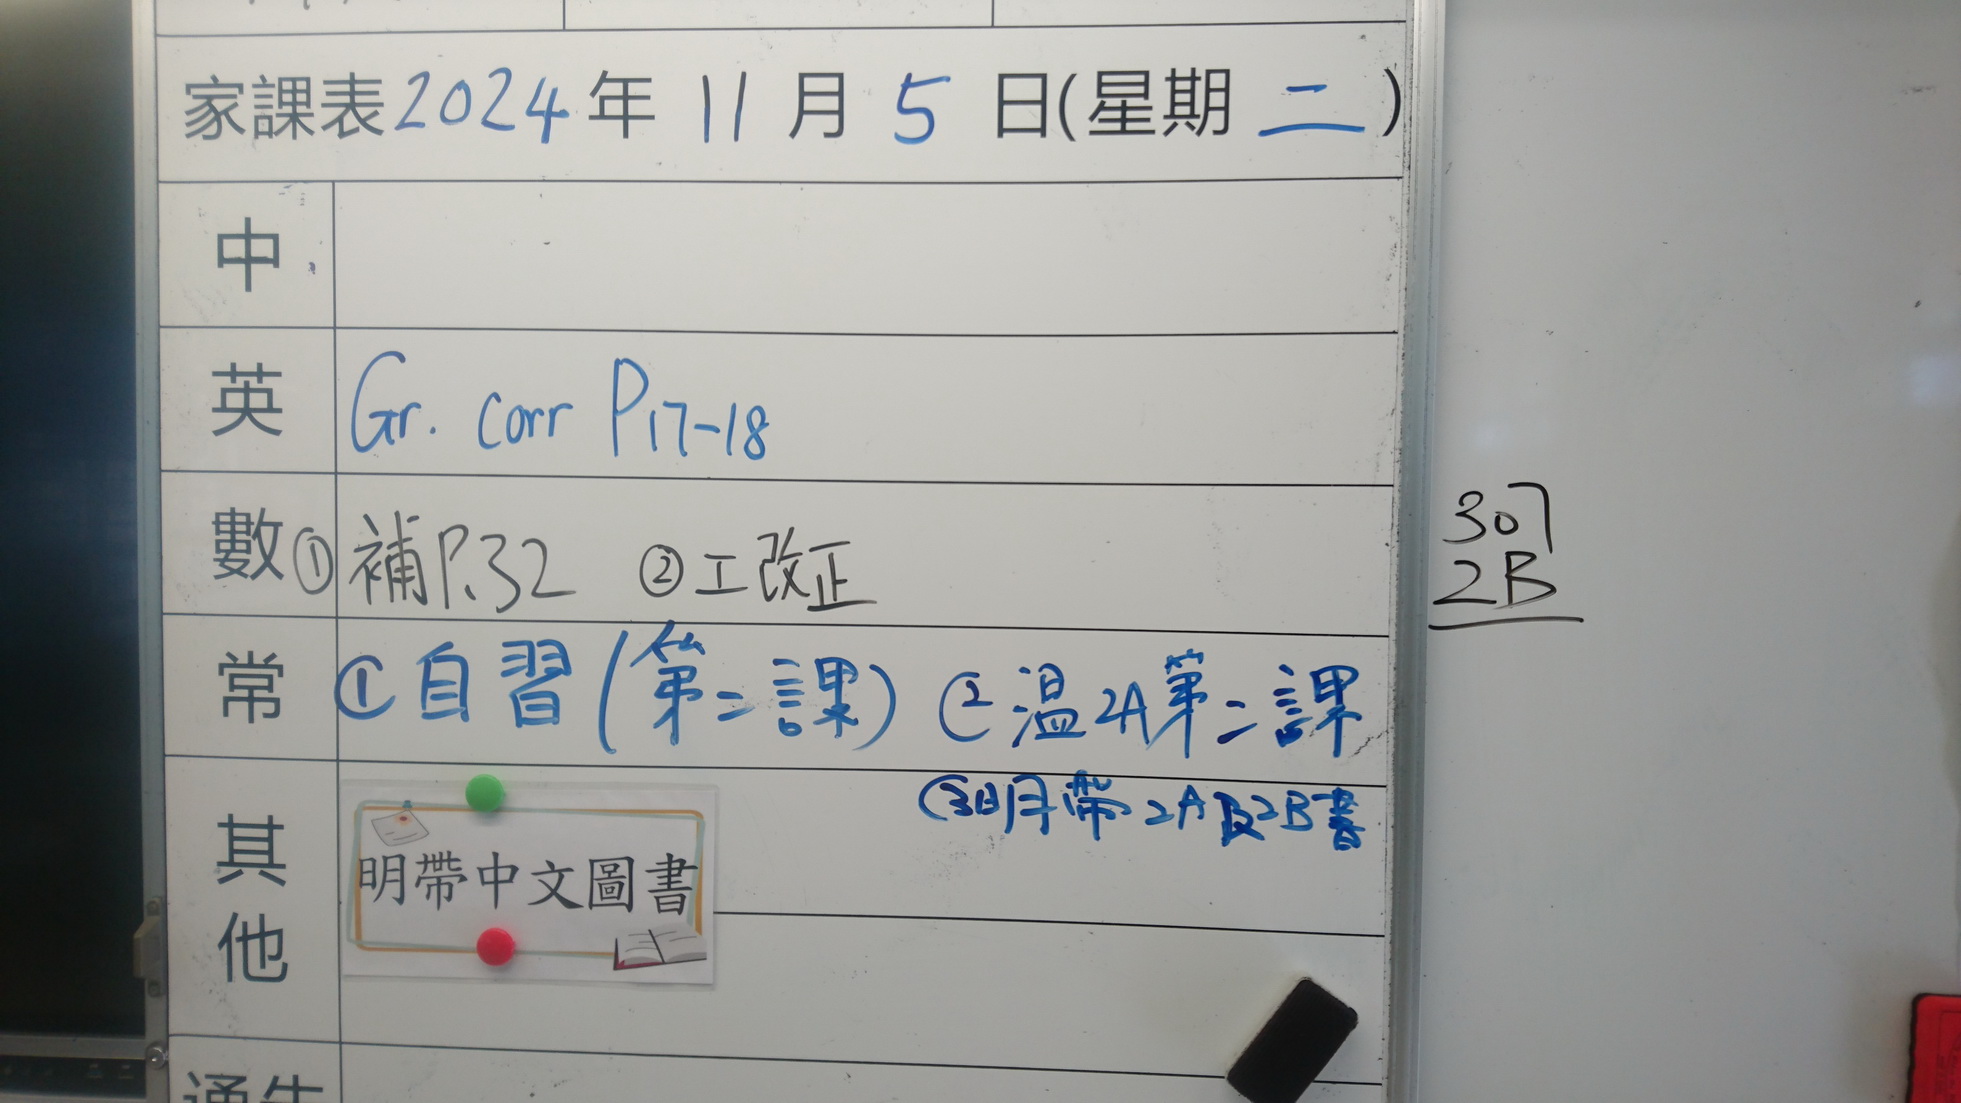 家課表2024年 11 月 5 日(星期 二 )
中
英 Gr. corr P17-18
數 ①補P.32 ②工改正
307
2B
常 ①自習(第二課) ②溫2A第二課
③明帶2A及2B書
其他
明帶中文圖書
通告